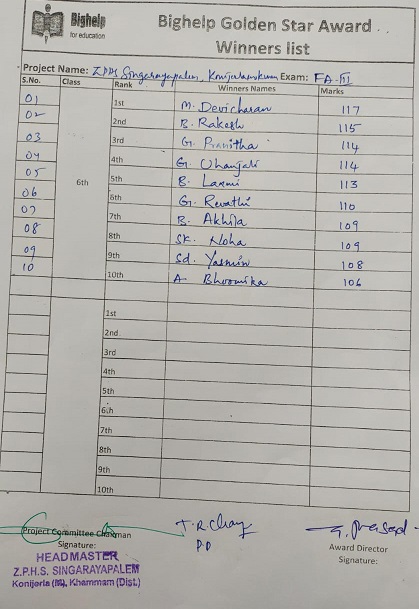 Bighelp
for education
Bighelp Golden Star Award
Winners list
Project Name: ZPHS Singarayapalem, Konijerla Exam: FA-III
S.No. Class Rank Winners Names Marks
01 1st M. Devicharan 117
02 2nd B. Rakesh 115
03 3rd G. Pranitha 114
04 4th G. 114
05 5th B. Laxmi 113
06 6th 6th G. Revathi 110
07 7th B. Akhila 109
08 8th Sk. Noha 109
09 9th Sd. Yasmin 108
10 10th A Bhoomika 106
1st
2nd
3rd
4th
5th
6th
7th
8th
9th
10th
Project Committee Chairman
Signature:
HEADMASTER
Z.P.H.S. SINGARAYAPALEM
Konijerla (M), Khammam (Dist.)
T.R.Chary
P.D
G. Prasad
Award Director
Signature: